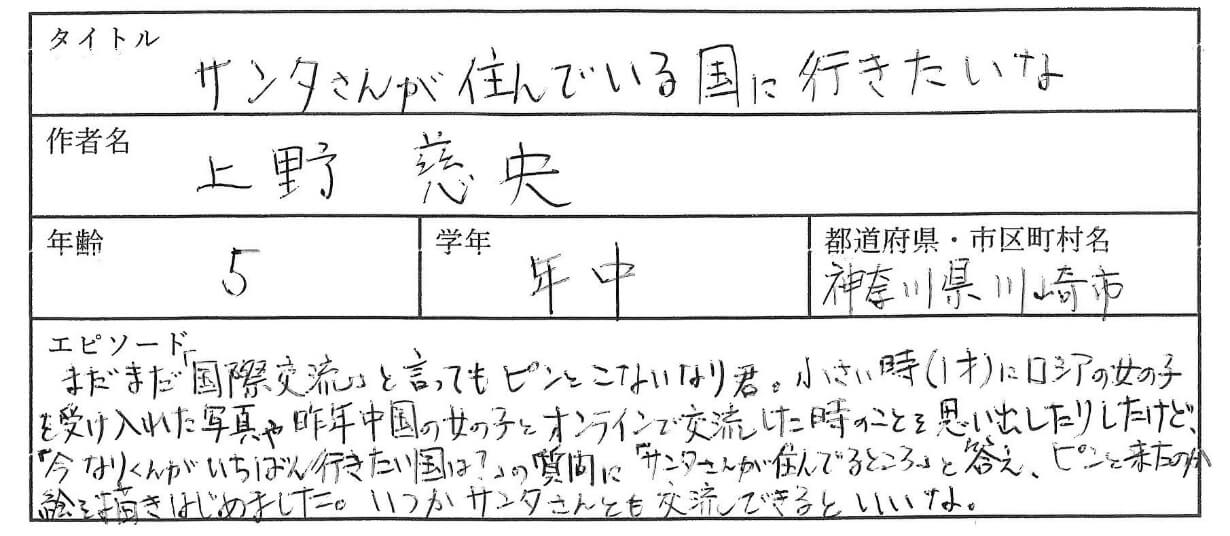 タイトル
サンタさんが住んでいる国に行きたいな
作者名
上野 慈央
年齢
5
学年
年中
都道府県・市区町村名
神奈川県川崎市
エピソード
まだまだ「国際交流」と言ってもピンとこないなり君。小さい時(1才)にロシアの女の子
を受け入れた写真や昨年中国の女の子とオンラインで交流した時のことを思い出したりしたけど、
「今なりくんがいちばん行きたい国は?」の質問に「サンタさんが住んでるところ」と答え、ピンと来たのか
絵を描きはじめました。いつかサンタさんとも交流できるといいな。